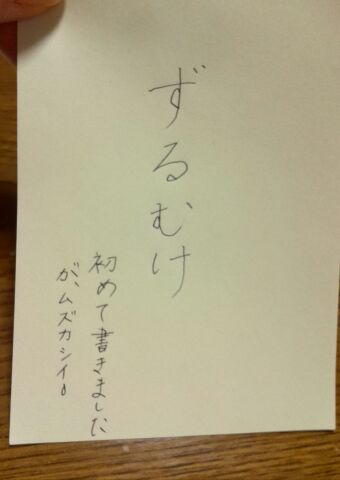 ずるむけ
初めて書きました
が、ムズカシイ。